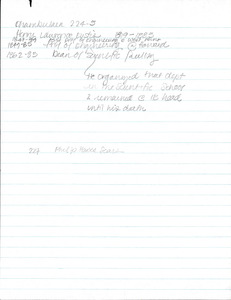 Chamberlain 224-5
Henry Lawrence Eustis 1819-1885
1849-85 Prof of Engineering @ Harvard
1862-85 Dean of Scientific Faculty
he organized that dept
in the Scientific School
& remained @ its head
until his death
227 Philip Howes Sears